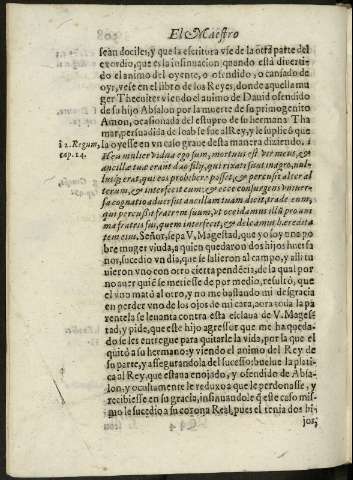 El Maestro
sean dociles, y que la escritura vse de la otra parte del
exordio, que es la insinuacion, quando está diuerti-
do el animo del oyente, o ofendido, o cansado de
oyr, vese en el libro de los Reyes, donde aquella mu
ger Thecuiter viendo el animo de Dauid ofendido
de su hijo Absalon por la muerte de su primogenito
Amon, ocasionada del estupro de su hermana Tha
mar, persuadida de Ioab se fue al Rey, y le suplicó que
la oyesse en vn caso graue desta manera diziendo. i
i 2. Regum,
cap. 14.
Heu mulier vidua ego sum, mortuus est vir meus, &
ancillæ tuæ erant duo filij, qui rixati sunt in agro, nul-
lusque erat, qui eos prohibere posset, & percussit alter al
terum, & interfecit eum: & ecce consurgens vniuer-
sa cognatio aduersus ancillam tuam dicit, trade eum,
qui percussit fratrem suum, vt occidamus illū pro ani
ma fratris sui, quem interfecit, & deleamus hæredita
tem eius. Señor, sepa V. Magestad, que yo soy vna po
bre muger viuda, a quien quedaron dos hijos huerfa
nos, sucedio vn dia, que se salieron al campo, y alli tu
uieron vno con otro cierta pendēcia, de la qual por
no auer quiē se metiesse de por medio, resultó, que
el vno mató al otro, y no me bastando mi desgracia
en perder vno de los ojos de mi cara, aora toda la pa
rentela se leuanta contra esta esclaua de V. Mages
tad, y pide, que este hijo agressor que me ha queda-
do se les entregue para quitarle la vida, por la que el
quitó a su hermano: y viendo el animo del Rey de
su parte, y assegurandola del sucesso; buelue la plati-
ca al Rey, que estaua enojado, y ofendido de Absa-
lon, y ocultamente le reduxo a que le perdonasse, y
recibiesse en su gracia, insinuandole q̃ este caso mis-
mo le sucedio a su corona Real, pues el tenia dos hi-
jos,